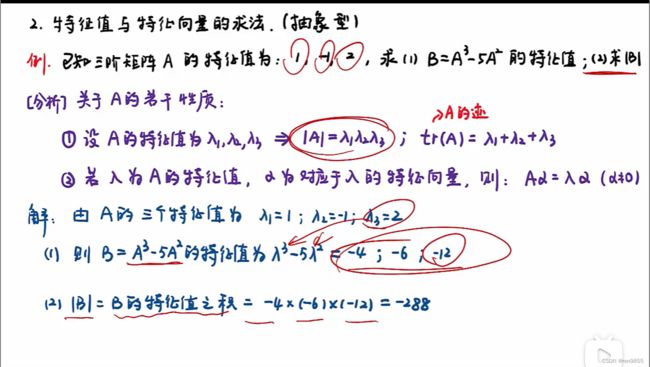 2. 特征值与特征向量的求法.(抽象型)
例. 已知三阶矩阵 A 的特征值为: 1, -1, 2, 求(1) B=A³-5A² 的特征值;(2)求|B|
[分析] 关于A的若干性质:
→A的迹
① 设 A的特征值为λ₁,λ₂,λ₃ ⇒ |A|=λ₁λ₂λ₃ ; tr(A)=λ₁+λ₂+λ₃
② 若 λ为A的特征值, α为对应于λ的特征向量, 则: Aα=λα (α≠0)
解: 由 A的三个特征值为 λ₁=1 ; λ₂=-1 ; λ₃=2
(1) 则 B=A³-5A²的特征值为 λ³-5λ² = -4 ; -6 ; -12
(2) |B| = B的特征值之积 = -4×(-6)×(-12) = -288